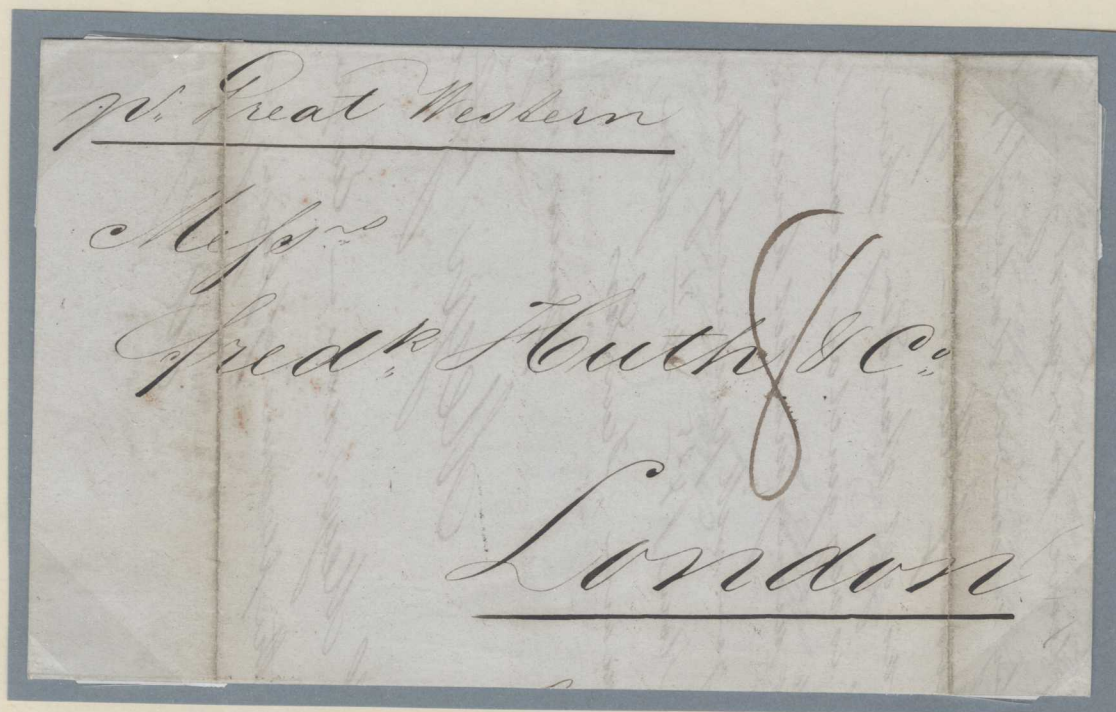 pr. Great Western
Messrs
Fredk. Huth & Co.
8
London